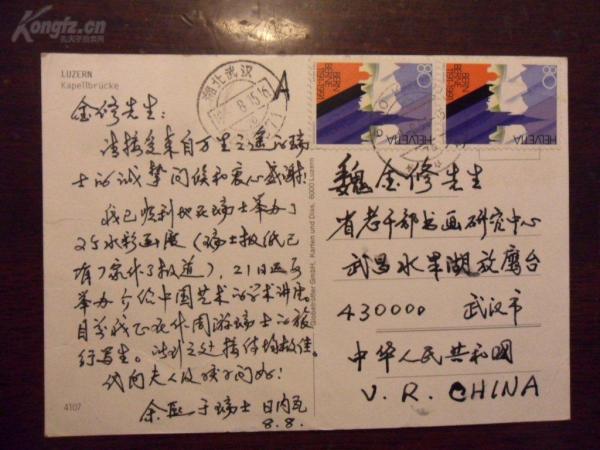 Kongfz.cn
LUZERN
Kapellbrücke
金修先生：
请接受来自万里之遥的瑞
士的诚挚问候和衷心感谢！
我已顺利地在瑞士举办了
2次水彩画展（瑞士报纸已
有7家作了报道），21日还要
举办介绍中国艺术的学术讲座。
目前我正在作周游瑞士的旅
行写生。所到之处接待均极佳。
代向夫人及孩子问好！
于瑞士 日内瓦
8.8.
4107
湖北武汉
A
80
80
HELVETIA
HELVETIA
BERNE
1191-1991
BERNE
1191-1991
Globetrotter GmbH, Karten und Dias, 6000 Luzern
魏金修先生
省老干部书画研究中心
武昌水果湖放鹰台
430000 武汉市
中华人民共和国
V. R. CHINA